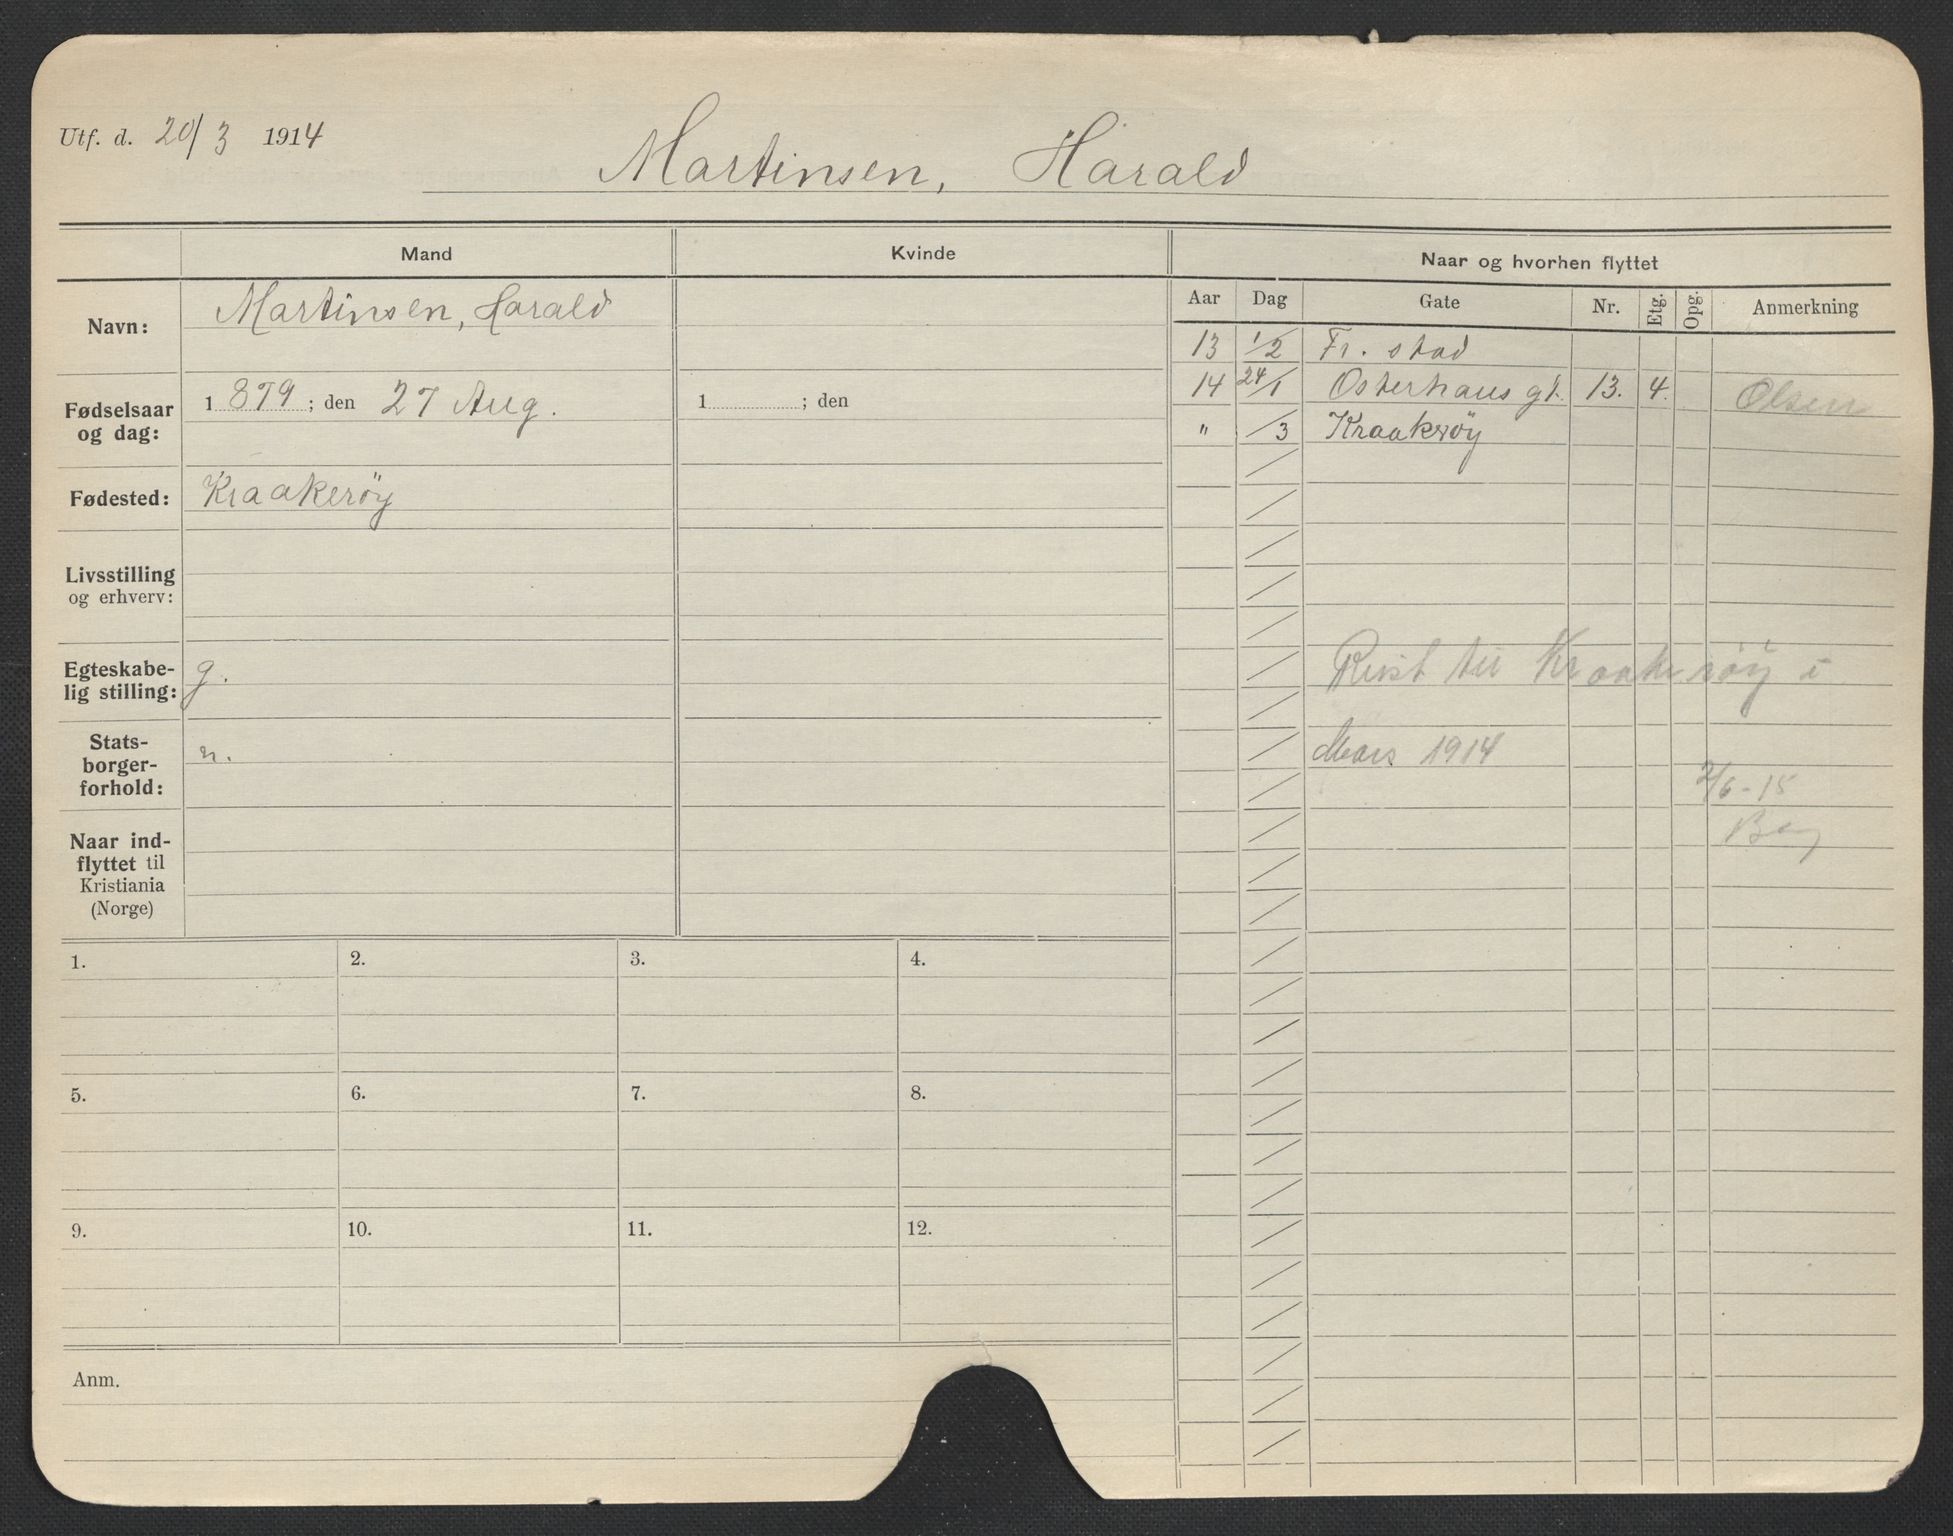 Utf. d. 20/3 1914
Martinsen, Harald
Mand
Kvinde
Naar og hvorhen flyttet
Navn:
Martinsen, Harald
Fødselsaar
og dag:
1 879 ; den 27 Aug.
1 ; den
Fødested:
Kraakerøy
Livsstilling
og erhverv:
Egteskabe-
lig stilling:
g.
Stats-
borger-
forhold:
n.
Naar ind-
flyttet til
Kristiania
(Norge)
Aar Dag Gate Nr. Etg. Opg. Anmerkning
13 1/2 Fr. stad
14 24/1 Osterhaus gt. 13. 4. Olsen
" /3 Kraakerøy
Reist til Kraakerøy i
Mars 1914
2/6-15
1. 2. 3. 4.
5. 6. 7. 8.
9. 10. 11. 12.
Anm.